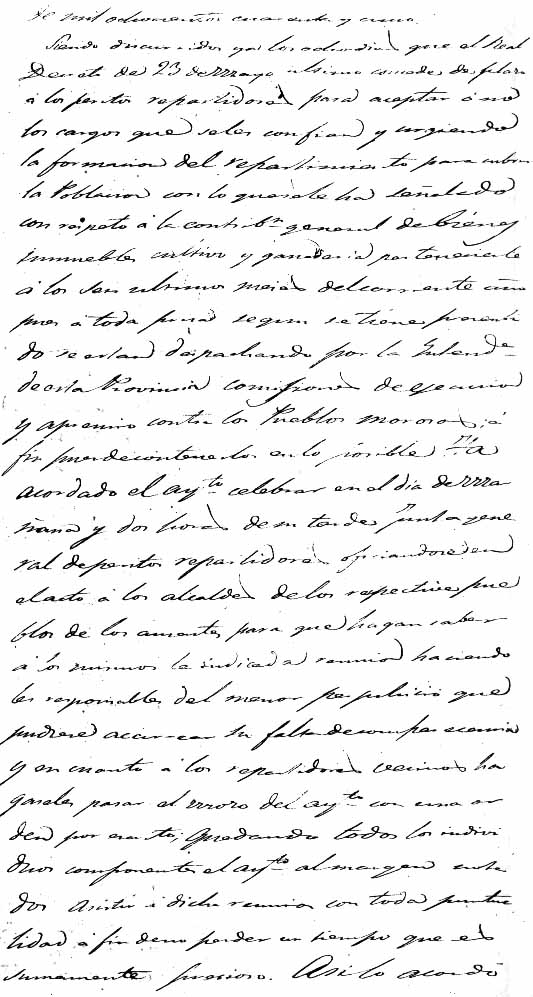 de mil ochocientos cuarenta y cinco.
Siendo discurridos ya los ocho dias que el Real
Decreto de 23 de Mayo ultimo concede de plazo
á los peritos repartidores para aceptar ó no
los cargos que se les confian y urgiendo
la formacion del repartimiento para cubrir
la Poblacion con lo que se le ha señalado
con respeto á la contribn general de bienes
inmuebles cultivo y ganaderia perteneciente
á los seis ultimos meses del corriente año
pues á toda prisa segun se tiene presenti
do se estan despachando por la Intenda
de esta Provincia comisiones de ejecucion
y apremio contra los Pueblos morosos; á
fin pues de contenerlos en lo posible ha
acordado el aytto celebrar en el dia de ma
ñana y dos horas de su tarde junta gene
ral de peritos repartidores oficiandose en
el acto á los alcaldes de los respectivos pue
blos de los ausentes para que hagan saber
á los mismos la indicada reunion haciendo
les responsables del menor perjuicio que
pudiere acarrear su falta de comparecencia
y en cuanto á los repartidores vecinos ha
gaseles pasar el mozo del aytto con una or
den por escrito, quedando todos los indivi
duos componentes el aytto al margen
dos asistir á dicha reunion con toda puntua
lidad á fin de no perder un tiempo que es
sumamente precioso. Asi lo acordó